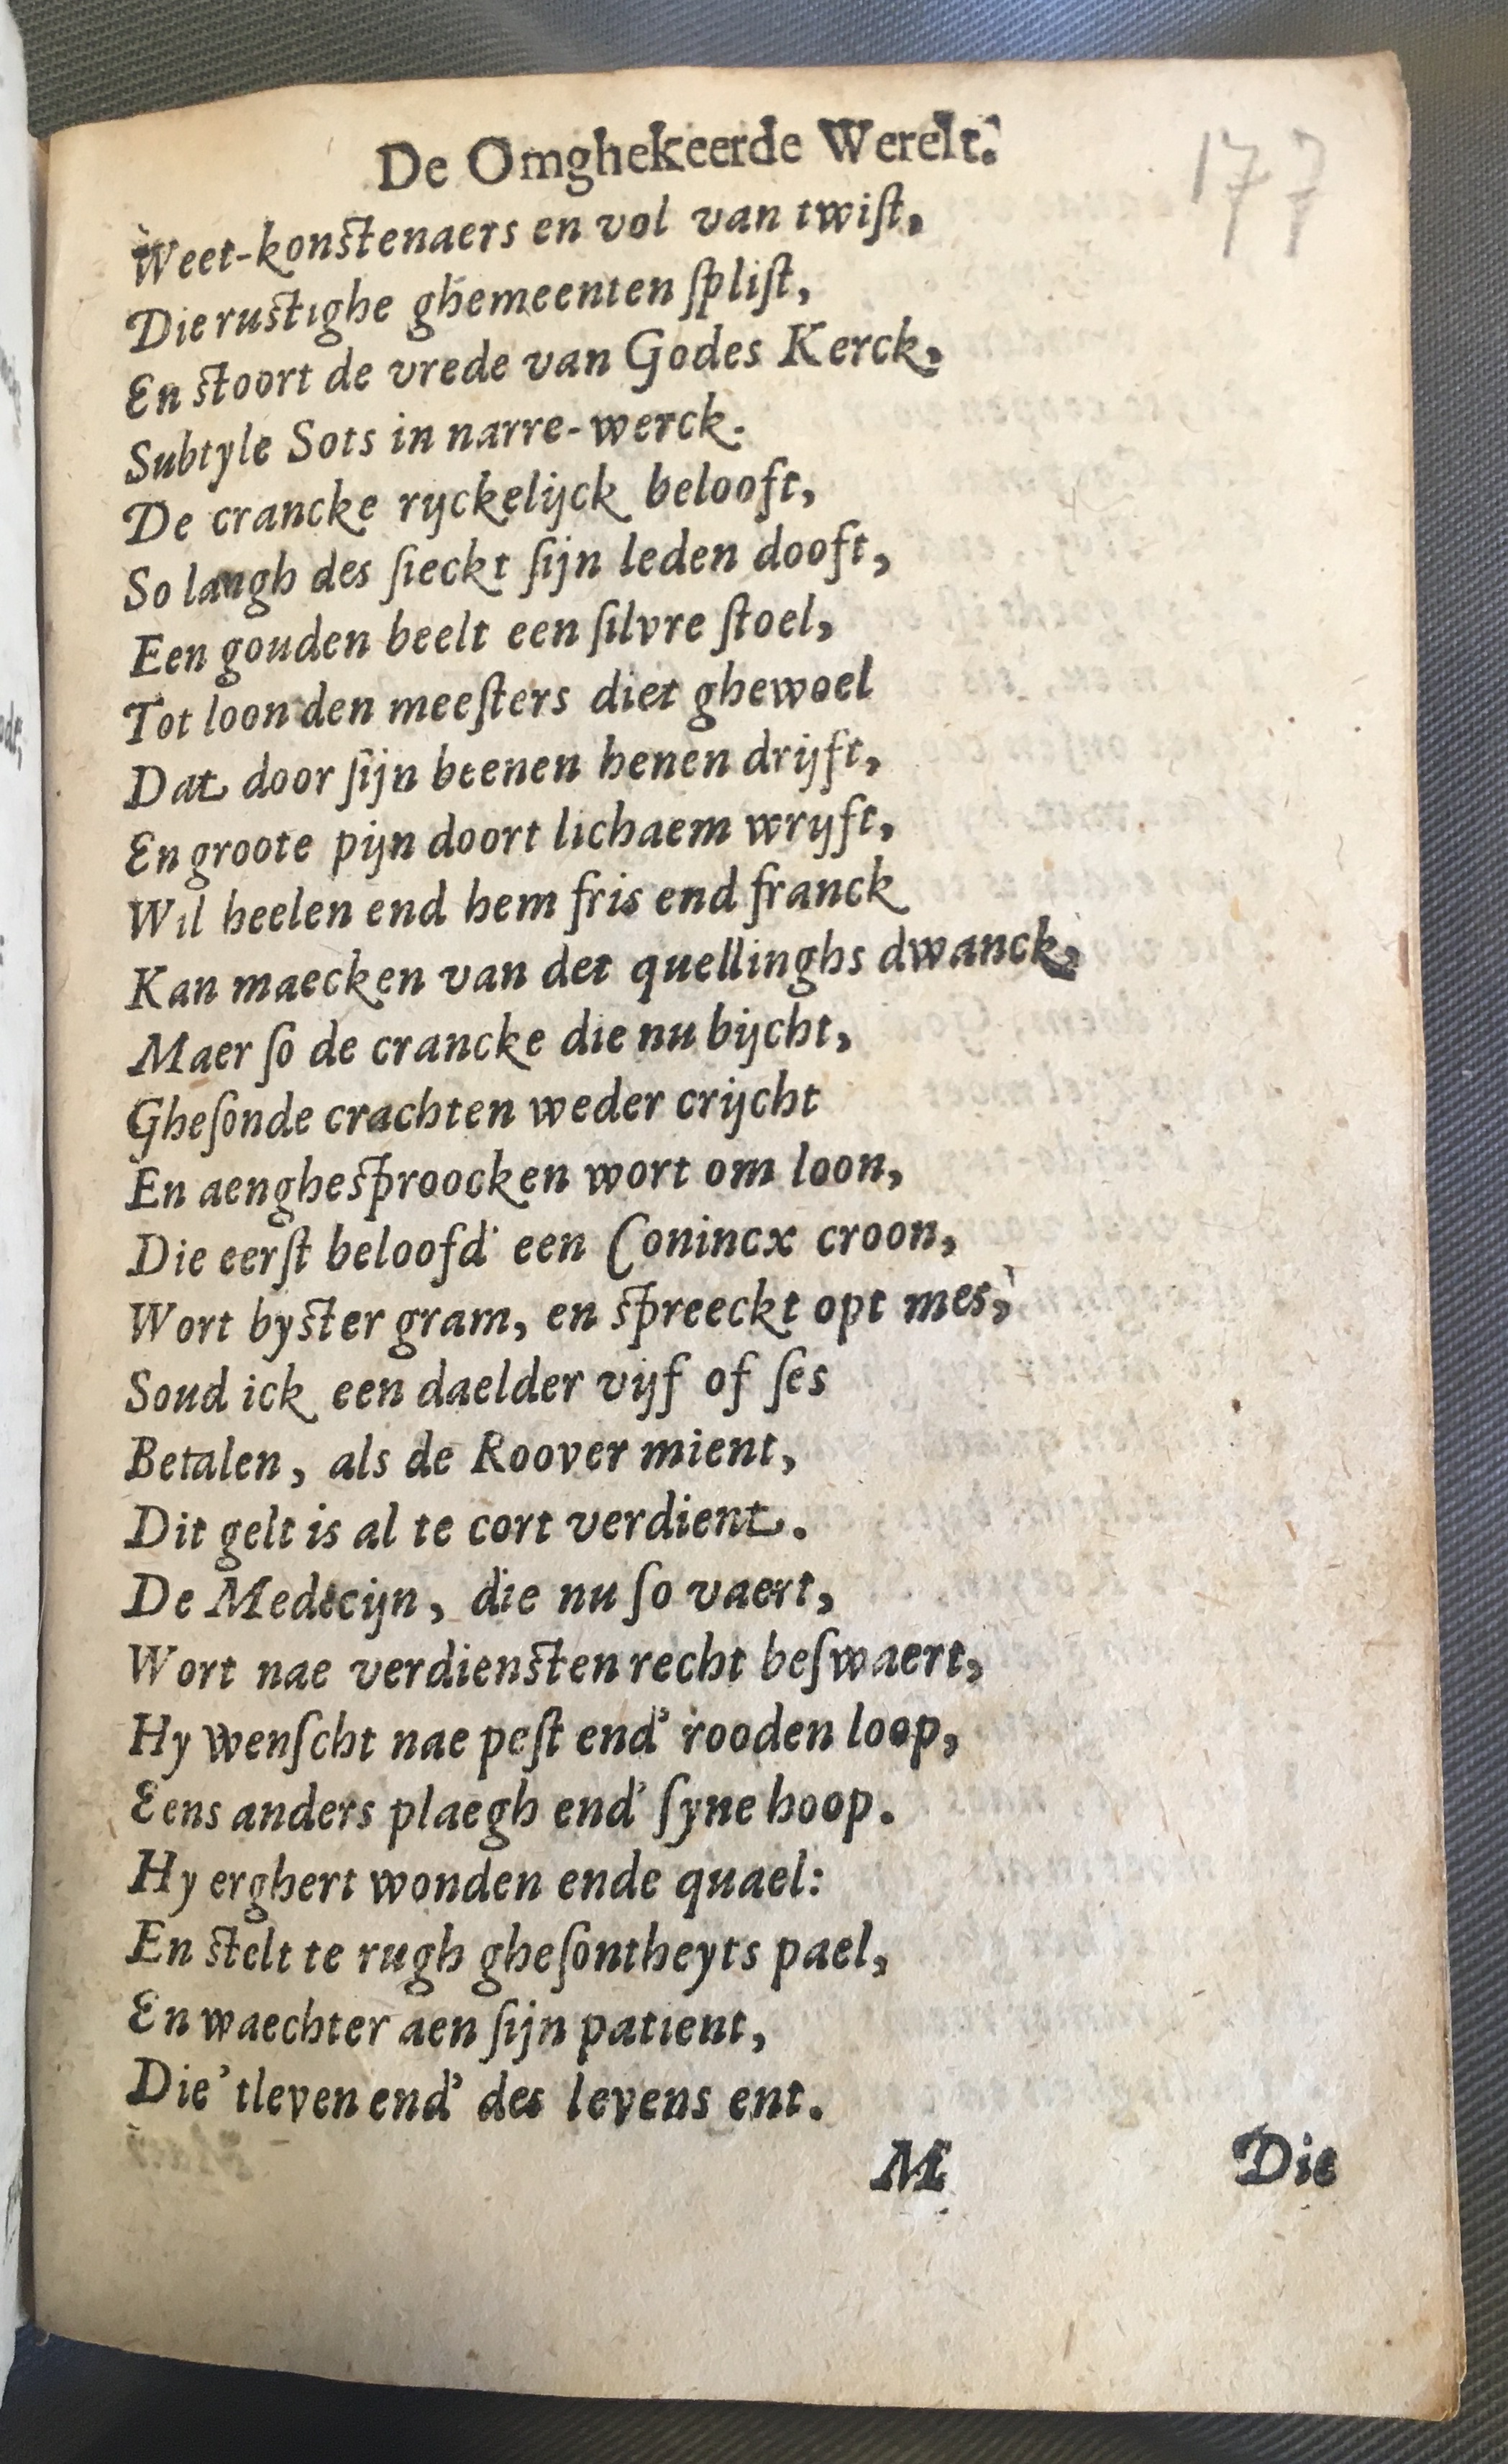 De Omghekeerde Werelt.
177
Weet-konstenaers en vol van twiſt,
Die rustighe ghemeenten ſpliſt,
En stoort de vrede van Godes Kerck,
Subtyle Sots in narre-werck.
De crancke ryckelijck belooft,
So langh des ſieckt ſijn leden dooft,
Een gouden beelt een ſilvre ſtoel,
Tot loon den meeſters diet ghewoel
Dat door ſijn beenen henen drijft,
En groote pijn doort lichaem wryft,
Wil heelen end hem fris end franck
Kan maecken van det quellinghs dwanck,
Maer ſo de crancke die nu bijcht,
Gheſonde crachten weder crijcht
En aenghesproocken wort om loon,
Die eerſt beloofd' een Conincx croon,
Wort byster gram, en spreeckt opt mes,
Soud ick een daelder vijf of ſes
Betalen, als de Roover mient,
Dit gelt is al te cort verdient.
De Medecijn, die nu ſo vaert,
Wort nae verdiensten recht beſwaert,
Hy wenſcht nae peſt end' rooden loop,
Eens anders plaegh end' ſyne hoop.
Hy erghert wonden ende quael:
En stelt te rugh gheſontheyts pael,
En waechter aen ſijn patient,
Die 'tleven end' des levens ent.
M
Die